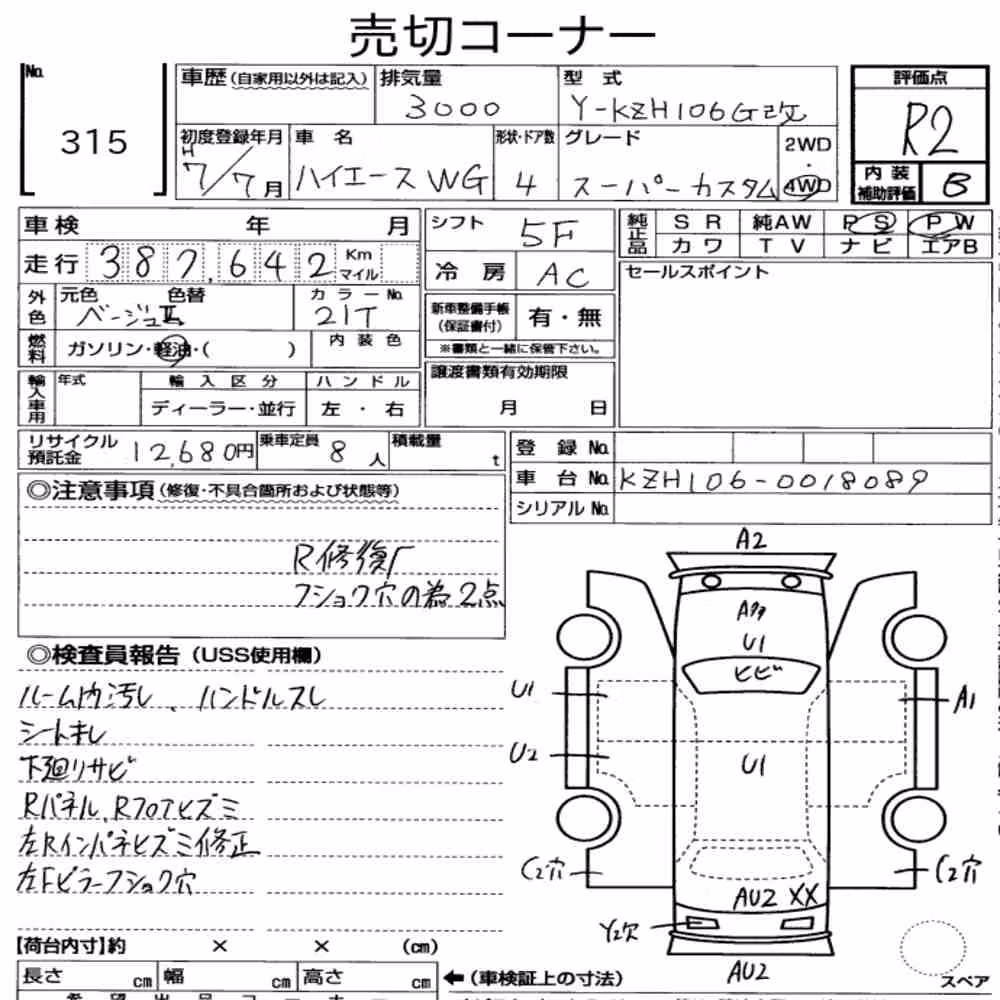 売切コーナー
No. 315
車歴(自家用以外は記入) 排気量 3000 型式 Y-KZH106G改 評価点 R2
初度登録年月 H7/7月 車名 ハイエースWG 形状・ドア数 4 グレード スーパーカスタム 2WD・4WD
内装補助評価 B
車検 年 月 シフト 5F 純正品 SR 純AW PS PW
カワ TV ナビ エアB
走行 387,642 Km マイル 冷房 AC セールスポイント
外色 元色 ベージュII 色替 カラーNo. 21T 新車整備手帳(保証書付) 有・無
※書類と一緒に保管下さい。
燃料 ガソリン・軽油・( ) 内装色
輸入車用 年式 輸入区分 ハンドル 譲渡書類有効期限
ディーラー・並行 左・右 月 日
リサイクル預託金 12,680円 乗車定員 8人 積載量 t 登録No.
車台No. KZH106-0018089
シリアルNo.
◎注意事項(修復・不具合箇所および状態等)
R修復歴
フショク穴の為2点
◎検査員報告(USS使用欄)
ルーム内汚レ、ハンドルスレ
シートキレ
下廻リサビ
Rパネル、Rフロアヒズミ
左Rインパネヒズミ修正
左Fピラーフショク穴
A2
U1
ヒビ
U1
A1
U2
U1
C2穴
C2穴
AU2 XX
Y2穴
AU2
スペア
【荷台内寸】約 × × (cm)
長さ cm 幅 cm 高さ cm ←(車検証上の寸法)